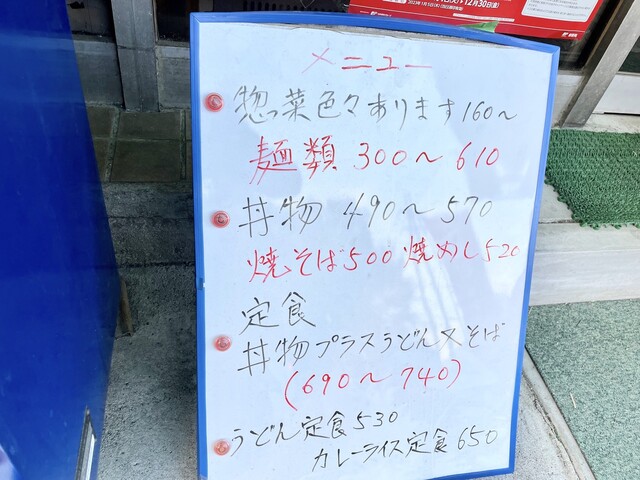 12月30日(金)
メニュー
惣菜色々あります160〜
麺類 300〜610
丼物 490〜570
焼そば500 焼めし520
定食
丼物プラスうどん又そば
(690〜740)
うどん定食530
カレーライス定食650